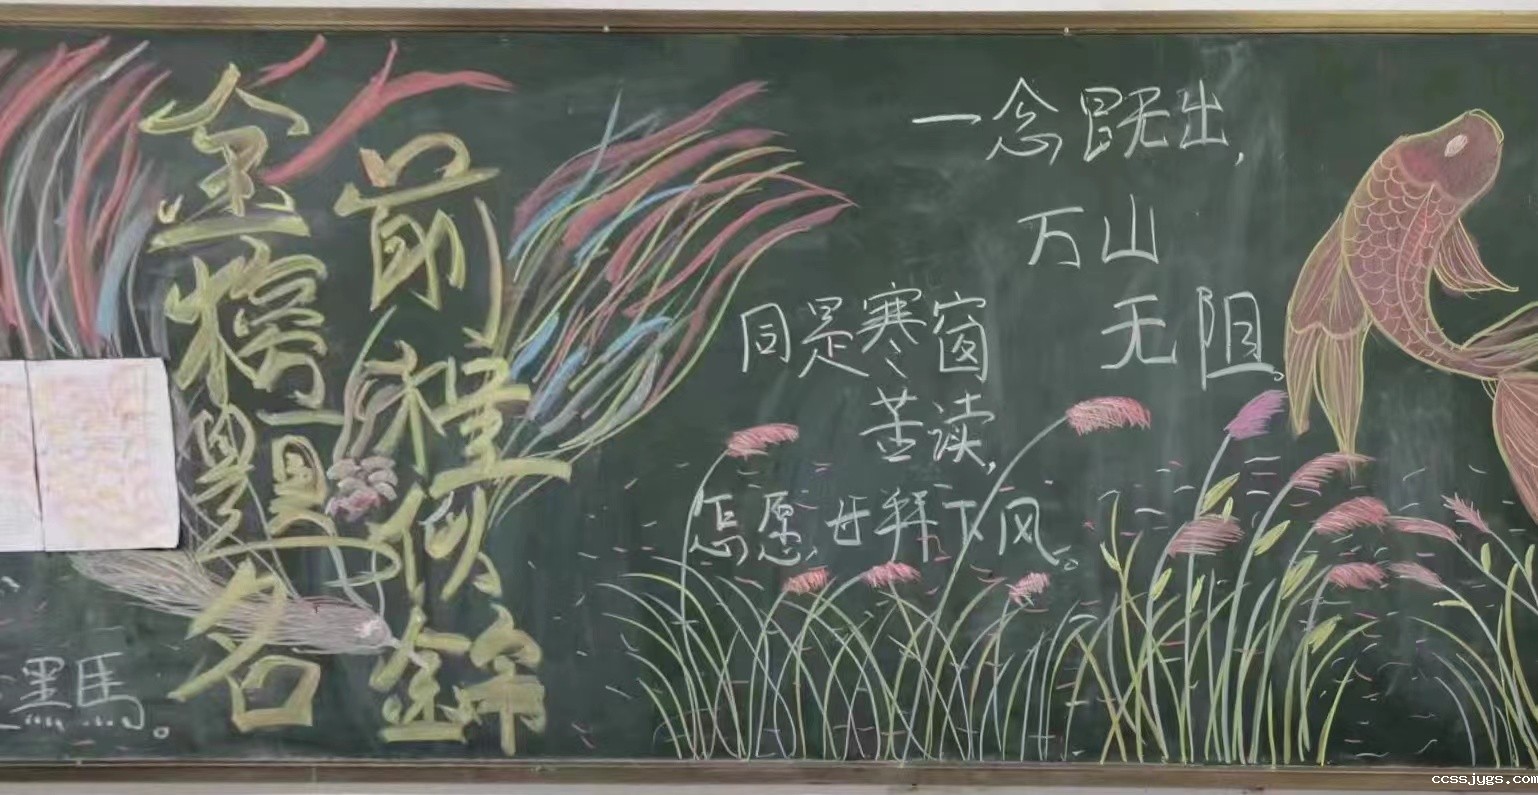 前程似锦
金榜题名
黑馬。
一念既出,
万山
无阻。
同是寒窗
苦读,
怎愿甘拜下风。
ccssjygs.com